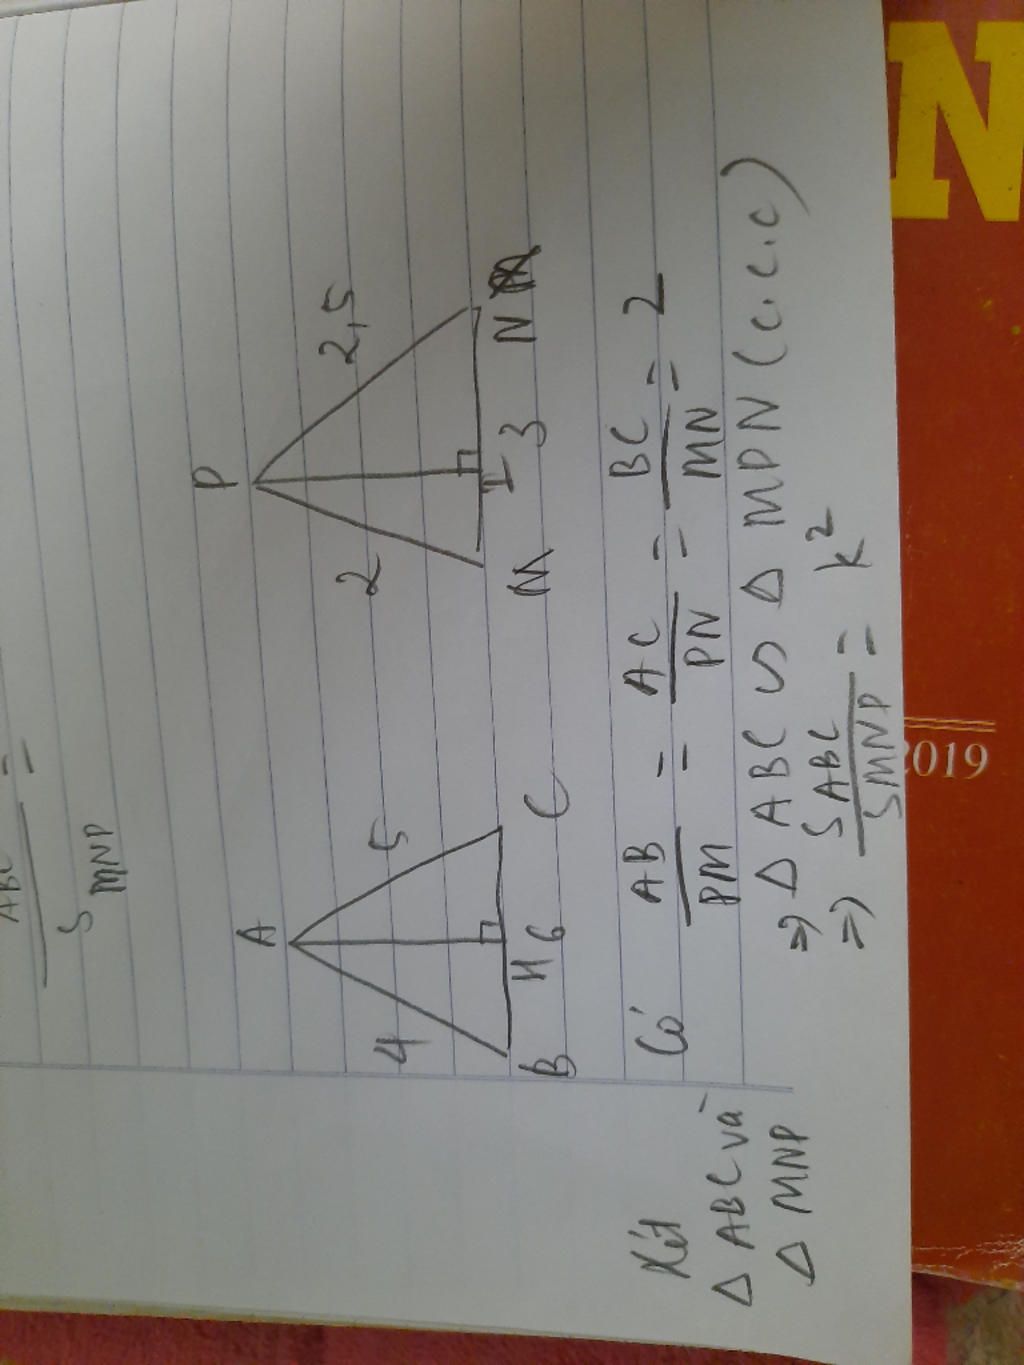 ABC =
S MNP
A
4 5
B H 6 C
P
2 2,5
M I 3 N
Xét
Δ ABC và
Δ MNP
Có AB/PM = AC/PN = BC/MN = 2
=) Δ ABC ∽ Δ MPN (c.c.c)
=) S ABC / S MNP = k²
N
2019